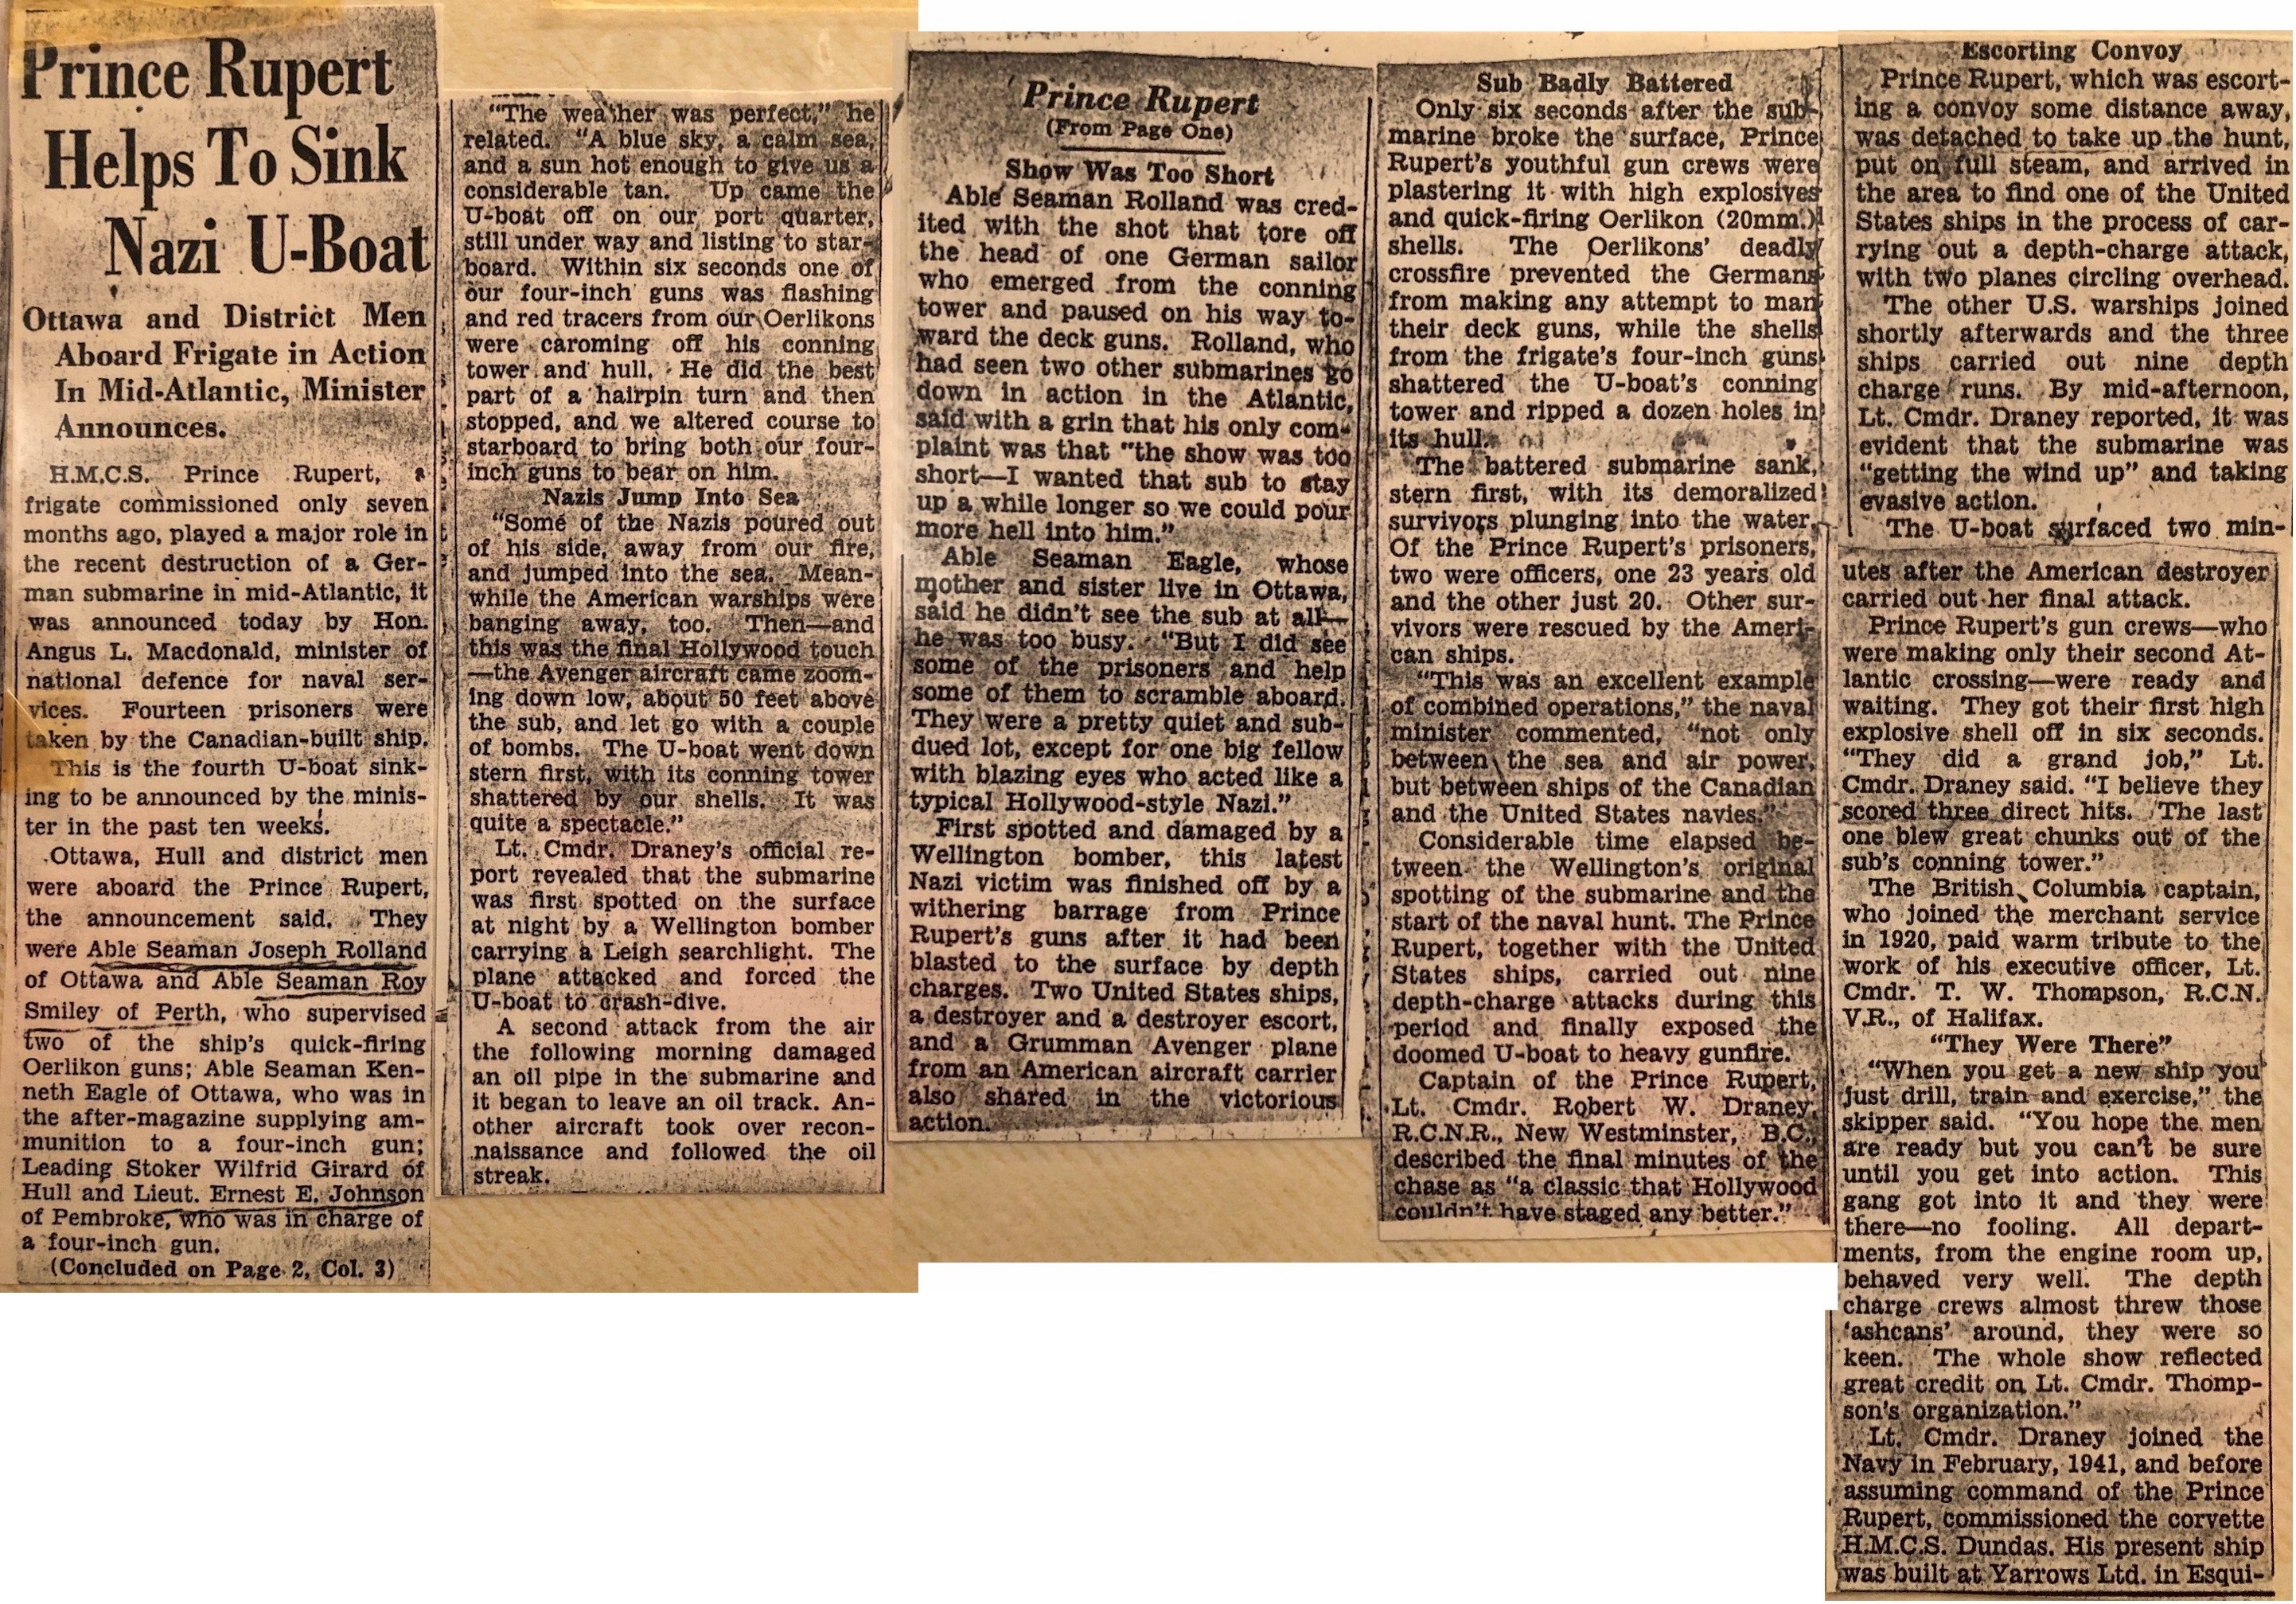 Prince Rupert
Helps To Sink
Nazi U-Boat
Ottawa and District Men
Aboard Frigate in Action
In Mid-Atlantic, Minister
Announces.
H.M.C.S. Prince Rupert, a
frigate commissioned only seven
months ago, played a major role in
the recent destruction of a Ger-
man submarine in mid-Atlantic, it
was announced today by Hon.
Angus L. Macdonald, minister of
national defence for naval ser-
vices. Fourteen prisoners were
taken by the Canadian-built ship.
This is the fourth U-boat sink-
ing to be announced by the minis-
ter in the past ten weeks.
Ottawa, Hull and district men
were aboard the Prince Rupert,
the announcement said. They
were Able Seaman Joseph Rolland
of Ottawa and Able Seaman Roy
Smiley of Perth, who supervised
two of the ship's quick-firing
Oerlikon guns; Able Seaman Ken-
neth Eagle of Ottawa, who was in
the after-magazine supplying am-
munition to a four-inch gun;
Leading Stoker Wilfrid Girard of
Hull and Lieut. Ernest E. Johnson
of Pembroke, who was in charge of
a four-inch gun.
(Concluded on Page 2, Col. 3)
"The weather was perfect," he
related. "A blue sky, a calm sea,
and a sun hot enough to give us a
considerable tan. Up came the
U-boat off on our port quarter,
still under way and listing to star-
board. Within six seconds one of
our four-inch guns was flashing
and red tracers from our Oerlikons
were caroming off his conning
tower and hull. He did the best
part of a hairpin turn and then
stopped, and we altered course to
starboard to bring both our four-
inch guns to bear on him.
Nazis Jump Into Sea
"Some of the Nazis poured out
of his side, away from our fire,
and jumped into the sea. Mean-
while the American warships were
banging away, too. Then—and
this was the final Hollywood touch
—the Avenger aircraft came zoom-
ing down low, about 50 feet above
the sub, and let go with a couple
of bombs. The U-boat went down
stern first, with its conning tower
shattered by our shells. It was
quite a spectacle."
Lt. Cmdr. Draney's official re-
port revealed that the submarine
was first spotted on the surface
at night by a Wellington bomber
carrying a Leigh searchlight. The
plane attacked and forced the
U-boat to crash-dive.
A second attack from the air
the following morning damaged
an oil pipe in the submarine and
it began to leave an oil track. An-
other aircraft took over recon-
naissance and followed the oil
streak.
Prince Rupert
(From Page One)
Show Was Too Short
Able Seaman Rolland was cred-
ited with the shot that tore off
the head of one German sailor
who emerged from the conning
tower and paused on his way to-
ward the deck guns. Rolland, who
had seen two other submarines go
down in action in the Atlantic,
said with a grin that his only com-
plaint was that "the show was too
short—I wanted that sub to stay
up a while longer so we could pour
more hell into him."
Able Seaman Eagle, whose
mother and sister live in Ottawa,
said he didn't see the sub at all—
he was too busy. "But I did see
some of the prisoners and help
some of them to scramble aboard.
They were a pretty quiet and sub-
dued lot, except for one big fellow
with blazing eyes who acted like a
typical Hollywood-style Nazi."
First spotted and damaged by a
Wellington bomber, this latest
Nazi victim was finished off by a
withering barrage from Prince
Rupert's guns after it had been
blasted to the surface by depth
charges. Two United States ships,
a destroyer and a destroyer escort,
and a Grumman Avenger plane
from an American aircraft carrier
also shared in the victorious
action.
Sub Badly Battered
Only six seconds after the sub-
marine broke the surface, Prince
Rupert's youthful gun crews were
plastering it with high explosives
and quick-firing Oerlikon (20mm.)
shells. The Oerlikons' deadly
crossfire prevented the Germans
from making any attempt to man
their deck guns, while the shells
from the frigate's four-inch guns
shattered the U-boat's conning
tower and ripped a dozen holes in
its hull.
The battered submarine sank,
stern first, with its demoralized
survivors plunging into the water.
Of the Prince Rupert's prisoners,
two were officers, one 23 years old
and the other just 20. Other sur-
vivors were rescued by the Ameri-
can ships.
"This was an excellent example
of combined operations," the naval
minister commented, "not only
between the sea and air power,
but between ships of the Canadian
and the United States navies."
Considerable time elapsed be-
tween the Wellington's original
spotting of the submarine and the
start of the naval hunt. The Prince
Rupert, together with the United
States ships, carried out nine
depth-charge attacks during this
period and finally exposed the
doomed U-boat to heavy gunfire.
Captain of the Prince Rupert,
Lt. Cmdr. Robert W. Draney,
R.C.N.R., New Westminster, B.C.,
described the final minutes of the
chase as "a classic that Hollywood
couldn't have staged any better."
Escorting Convoy
Prince Rupert, which was escort-
ing a convoy some distance away,
was detached to take up the hunt,
put on full steam, and arrived in
the area to find one of the United
States ships in the process of car-
rying out a depth-charge attack,
with two planes circling overhead.
The other U.S. warships joined
shortly afterwards and the three
ships carried out nine depth
charge runs. By mid-afternoon,
Lt. Cmdr. Draney reported, it was
evident that the submarine was
"getting the wind up" and taking
evasive action.
The U-boat surfaced two min-
utes after the American destroyer
carried out her final attack.
Prince Rupert's gun crews—who
were making only their second At-
lantic crossing—were ready and
waiting. They got their first high
explosive shell off in six seconds.
"They did a grand job," Lt.
Cmdr. Draney said. "I believe they
scored three direct hits. The last
one blew great chunks out of the
sub's conning tower."
The British Columbia captain,
who joined the merchant service
in 1920, paid warm tribute to the
work of his executive officer, Lt.
Cmdr. T. W. Thompson, R.C.N.
V.R., of Halifax.
"They Were There"
"When you get a new ship you
just drill, train and exercise," the
skipper said. "You hope the men
are ready but you can't be sure
until you get into action. This
gang got into it and they were
there—no fooling. All depart-
ments, from the engine room up,
behaved very well. The depth
charge crews almost threw those
'ashcans' around, they were so
keen. The whole show reflected
great credit on Lt. Cmdr. Thomp-
son's organization."
Lt. Cmdr. Draney joined the
Navy in February, 1941, and before
assuming command of the Prince
Rupert, commissioned the corvette
H.M.C.S. Dundas. His present ship
was built at Yarrows Ltd. in Esqui-